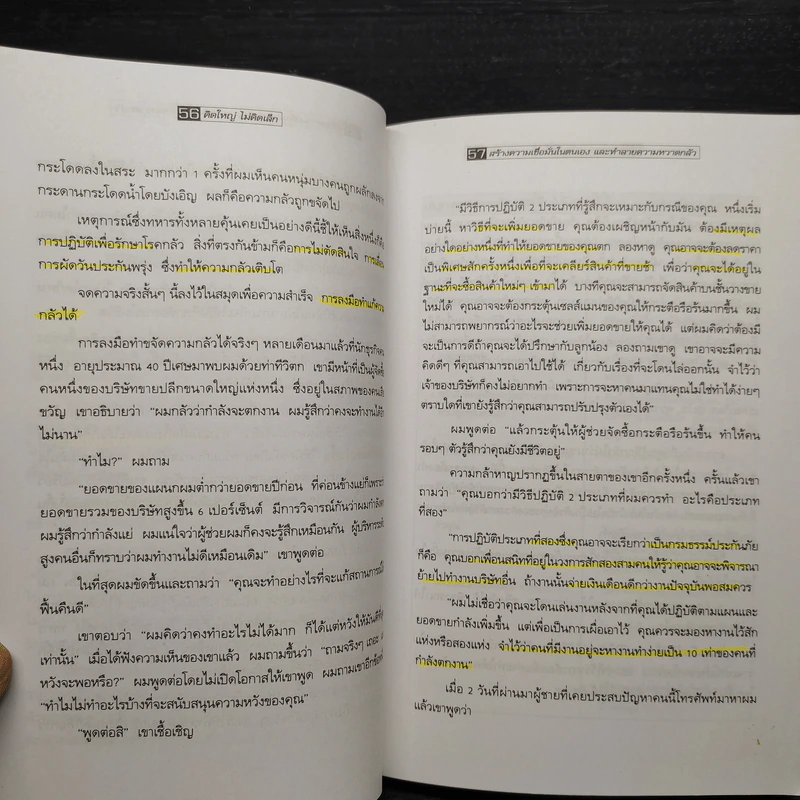 56 คิดใหญ่ ไม่คิดเล็ก
กระโดดลงในสระ มากกว่า 1 ครั้งที่ผมเห็นคนหนุ่มบางคนถูกผลักลงจาก
กระดานกระโดดน้ำโดยบังเอิญ ผลก็คือความกลัวถูกขจัดไป
เหตุการณ์ซึ่งทหารทั้งหลายคุ้นเคยเป็นอย่างดีนี้ชี้ให้เห็นสิ่งหนึ่งคือ
การปฏิบัติเพื่อรักษาโรคกลัว สิ่งที่ตรงกันข้ามก็คือการไม่ตัดสินใจ
การผัดวันประกันพรุ่ง ซึ่งทำให้ความกลัวเติบโต
จดความจริงสั้นๆ นี้ลงไว้ในสมุดเพื่อความสำเร็จ การลงมือทำแก้ความ
กลัวได้
การลงมือทำขจัดความกลัวได้จริงๆ หลายเดือนมาแล้วที่นักธุรกิจคน
หนึ่ง อายุประมาณ 40 ปีเศษมาพบผมด้วยท่าทีวิตก เขามีหน้าที่เป็น
คนหนึ่งของบริษัทขายปลีกขนาดใหญ่แห่งหนึ่ง ซึ่งอยู่ในสภาพของคน
ขวัญ เขาอธิบายว่า "ผมกลัวว่ากำลังจะตกงาน ผมรู้สึกว่าคงจะทำงานได้อีก
ไม่นาน"
"ทำไม?" ผมถาม
"ยอดขายของแผนกผมต่ำกว่ายอดขายปีก่อน ที่ค่อนข้างแย่ก็เพราะ
ยอดขายรวมของบริษัทสูงขึ้น 6 เปอร์เซ็นต์ มีการวิจารณ์กันว่าผมกำลัง
ผมรู้สึกว่ากำลังแย่ ผมแน่ใจว่าผู้ช่วยผมก็คงจะรู้สึกเหมือนกัน ผู้บริหารระดับ
สูงคนอื่นก็ทราบว่าผมทำงานไม่ดีเหมือนเดิม" เขาพูดต่อ
ในที่สุดผมขัดขึ้นและถามว่า "คุณจะทำอย่างไรที่จะแก้สถานการณ์ให้
ฟื้นคืนดี"
เขาตอบว่า "ผมคิดว่าคงทำอะไรไม่ได้มาก ก็ได้แต่หวังให้มันดีขึ้น
เท่านั้น" เมื่อได้ฟังความเห็นของเขาแล้ว ผมถามขึ้นว่า "ถามจริงๆ เถอะ แค่
หวังจะพอหรือ?" ผมพูดต่อโดยไม่เปิดโอกาสให้เขาพูด ผมถามเขาอีกข้อหนึ่ง
"ทำไมไม่ทำอะไรบ้างที่จะสนับสนุนความหวังของคุณ"
"พูดต่อสิ" เขาเชื้อเชิญ
57 สร้างความเชื่อมั่นในตนเอง และทำลายความหวาดกลัว
"มีวิธีการปฏิบัติ 2 ประเภทที่รู้สึกจะเหมาะกับกรณีของคุณ หนึ่งเริ่ม
บ่ายนี้ หาวิธีที่จะเพิ่มยอดขาย คุณต้องเผชิญหน้ากับมัน ต้องมีเหตุผล
อย่างใดอย่างหนึ่งที่ทำให้ยอดขายของคุณตก ลองหาดู คุณอาจจะต้องลดราคา
เป็นพิเศษสักครั้งหนึ่งเพื่อที่จะเคลียร์สินค้าที่ขายช้า เพื่อว่าคุณจะได้อยู่ใน
ฐานะที่จะซื้อสินค้าใหม่ๆ เข้ามาได้ บางทีคุณจะสามารถจัดสินค้าบนชั้นวางขาย
ใหม่ได้ คุณอาจจะต้องกระตุ้นเซลส์แมนของคุณให้กระตือรือร้นมากขึ้น ผม
ไม่สามารถพยากรณ์ว่าอะไรจะช่วยเพิ่มยอดขายให้คุณได้ แต่ผมคิดว่าต้องมี
จะเป็นการดีถ้าคุณจะได้ปรึกษากับลูกน้อง ลองถามเขาดู เขาอาจจะมีความ
คิดดีๆ ที่คุณสามารถเอาไปใช้ได้ เกี่ยวกับเรื่องที่จะโดนไล่ออกนั้น จำไว้ว่า
เจ้าของบริษัทก็คงไม่อยากทำ เพราะการจะหาคนมาแทนคุณไม่ใช่ทำได้ง่ายๆ
ตราบใดที่เขายังรู้สึกว่าคุณสามารถปรับปรุงตัวเองได้"
ผมพูดต่อ "แล้วกระตุ้นให้ผู้ช่วยจัดซื้อกระตือรือร้นขึ้น ทำให้คน
รอบๆ ตัวรู้สึกว่าคุณยังมีชีวิตอยู่"
ความกล้าหาญปรากฏขึ้นในสายตาของเขาอีกครั้งหนึ่ง ครั้นแล้วเขา
ถามว่า "คุณบอกว่ามีวิธีปฏิบัติ 2 ประเภทที่ผมควรทำ อะไรคือประเภท
ที่สอง"
"การปฏิบัติประเภทที่สองซึ่งคุณอาจจะเรียกว่าเป็นกรมธรรม์ประกันภัย
ก็คือ คุณบอกเพื่อนสนิทที่อยู่ในวงการสักสองสามคนให้รู้ว่าคุณอาจจะพิจารณา
ย้ายไปทำงานบริษัทอื่น ถ้างานนั้นจ่ายเงินเดือนดีกว่างานปัจจุบันพอสมควร
"ผมไม่เชื่อว่าคุณจะโดนเล่นงานหลังจากที่คุณได้ปฏิบัติตามแผนและ
ยอดขายกำลังเพิ่มขึ้น แต่เพื่อเป็นการเผื่อเอาไว้ คุณควรจะมองหางานไว้สัก
แห่งหรือสองแห่ง จำไว้ว่าคนที่มีงานอยู่จะหางานทำง่ายเป็น 10 เท่าของคนที่
กำลังตกงาน"
เมื่อ 2 วันที่ผ่านมาผู้ชายที่เคยประสบปัญหาคนนี้โทรศัพท์มาหาผม
แล้วเขาพูดว่า